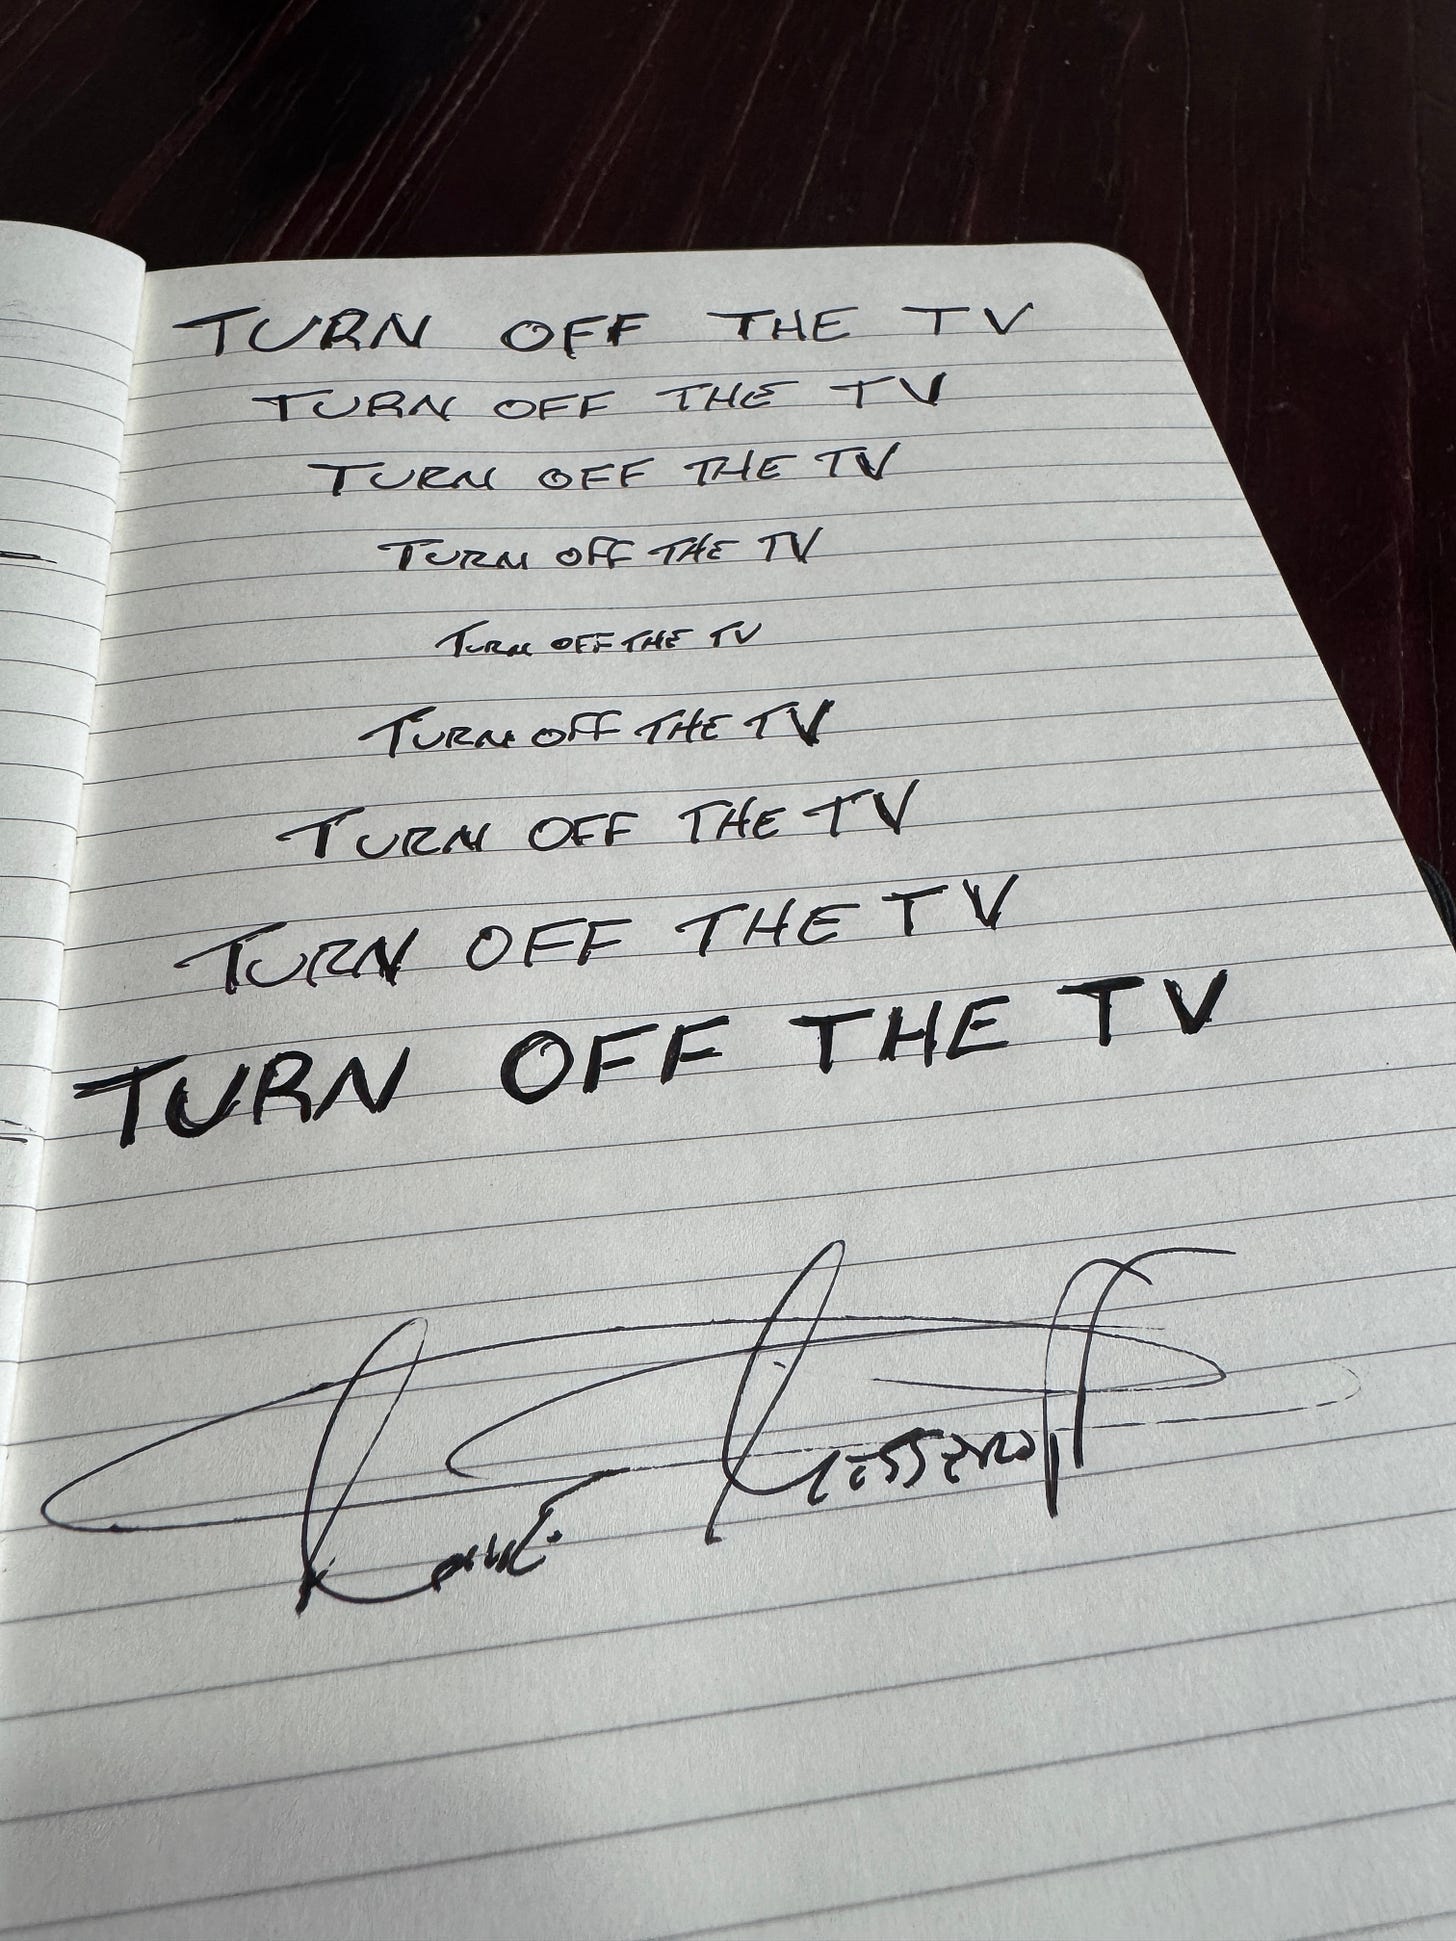 TURN OFF THE TV
TURN OFF THE TV
TURN OFF THE TV
TURN OFF THE TV
TURN OFF THE TV
TURN OFF THE TV
TURN OFF THE TV
TURN OFF THE TV
TURN OFF THE TV